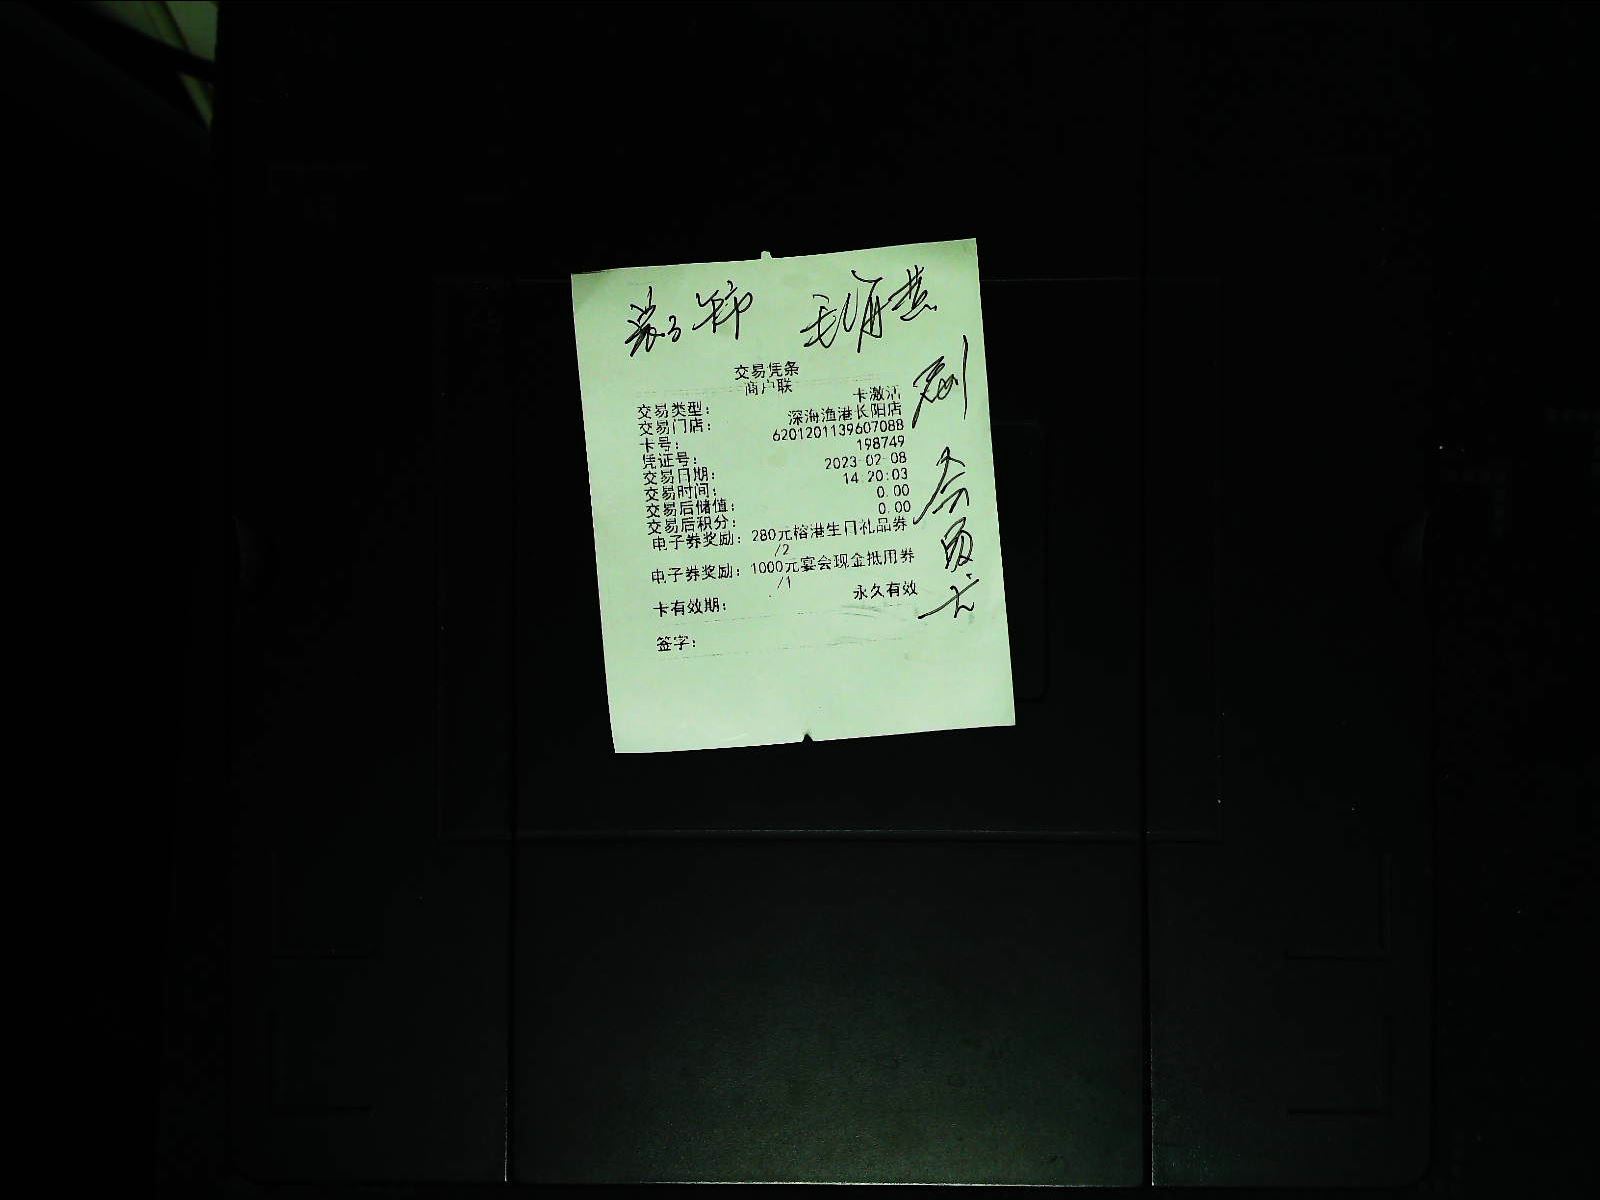 交易凭条
商户联
交易类型： 卡激活
交易门店： 深海渔港长阳店
卡号： 6201201139607088
凭证号： 198749
交易日期： 2023-02-08
交易时间： 14:20:03
交易后储值： 0.00
交易后积分： 0.00
电子券奖励： 280元榕港生日礼品券
/2
电子券奖励： 1000元宴会现金抵用券
/1
卡有效期： 永久有效
签字：
会员卡